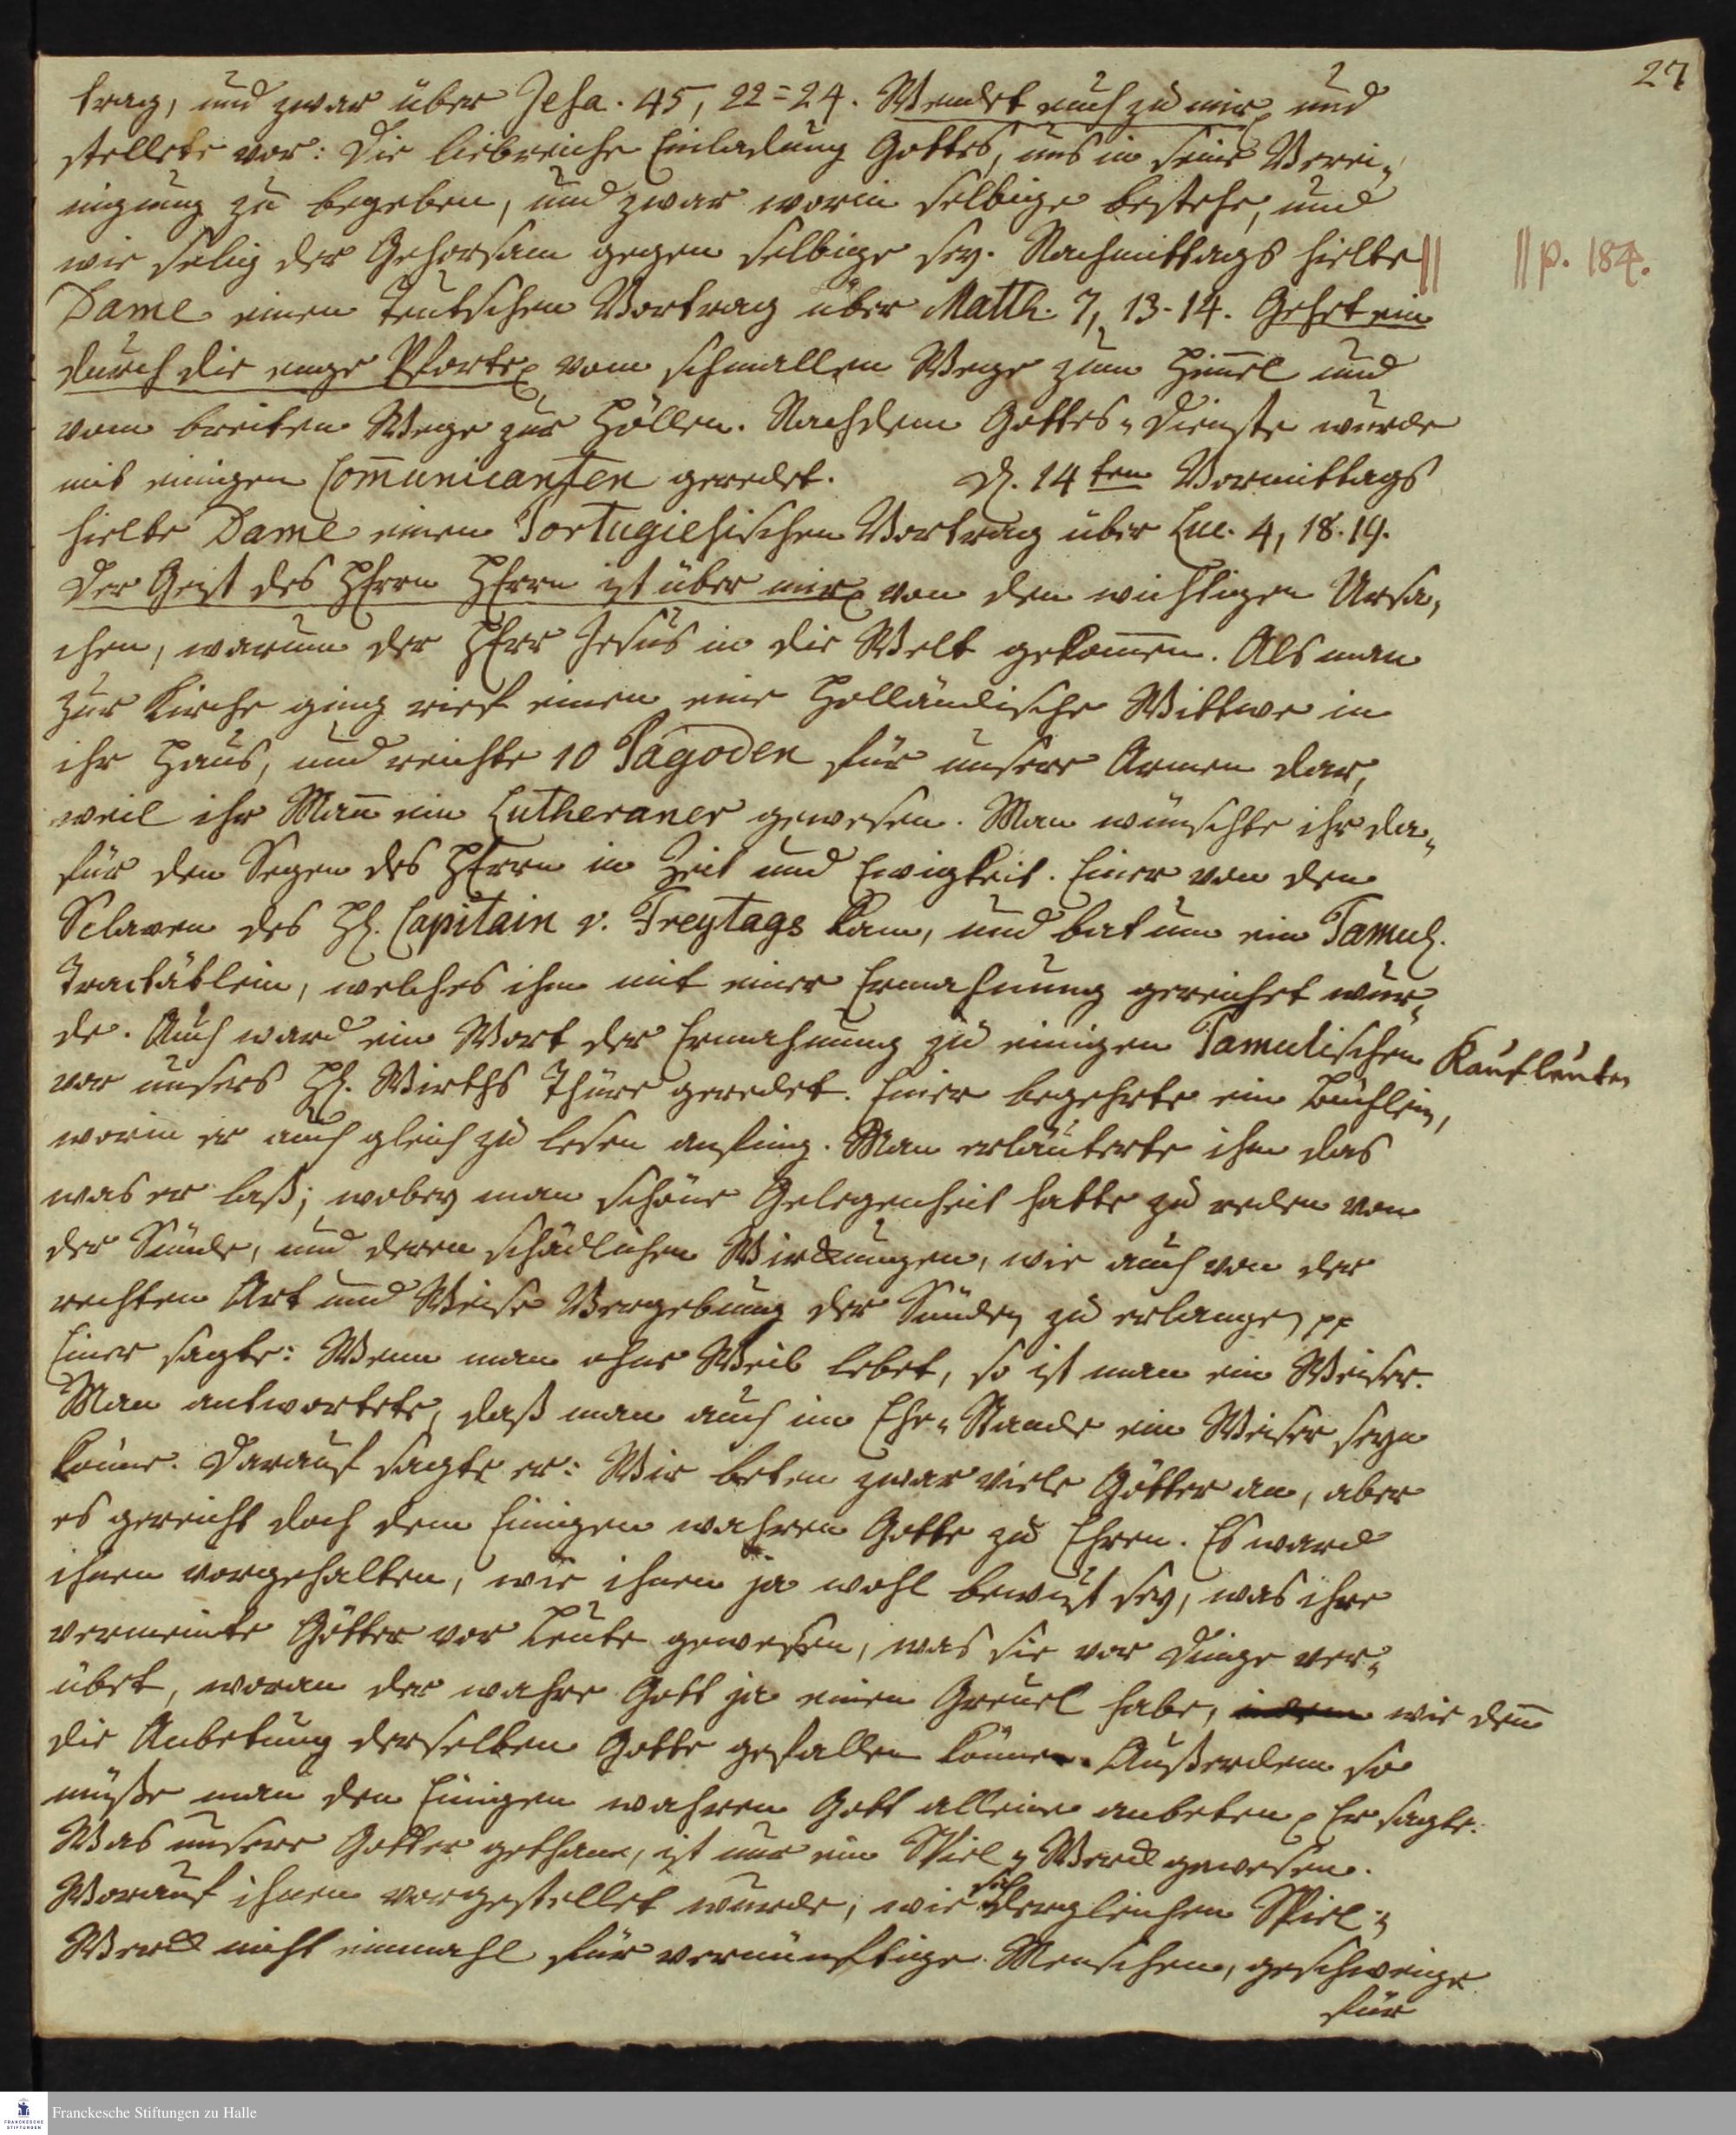 27
trag, und zwar über Jesa. 45, 22=24. Wendet euch zu mir, und
stellete vor: Die liebreiche Einladung Gottes, uns in seine Verei-
nigung zu begeben, und zwar worin selbige bestehe, und
wie selig der Gehorsam gegen selbige sey. Nachmittags hielte ||
|| p. 184.
Dame einen Teutschen Vortrag über Matth. 7, 13-14. Gehet ein
durch die enge Pforte, vom schmallen Wege zum Him̅el und
vom breiten Wege zur Höllen. Nachdem Gottes-Dienste wurde
mit einigen Com̅unicanten geredet. D. 14ten Vormittags
hielte Dame einen Portugiesischen Vortrag über Luc. 4, 18.19.
Der Geist des HErrn HErrn ist über mir, von den wichtigen Ursa-
chen, warum der HErr Jesus in die Welt gekom̅en. Als man
zur Kirche ging rief einen eine Holländische Wittwe in
ihr Haus, und reichte 10 Pagoden für unsere Armen dar,
weil ihr Man̅ ein Lutheraner gewesen. Man wünschte ihr da-
für den Segen des HErrn in Zeit und Ewigkeit. Einer von den
Sclaven des H. Capitain v. Freytags kam, und bat um ein Tamul.
Tractätlein, welches ihm mit einer Ermahnung gereichet wur-
de. Auch ward ein Wort der Ermahnung zu einigen Tamulischen Kaufleuten
vor unsers H. Wirths Thüre geredet. Einer begehrte ein Büchlein,
worin er auch gleich zu lesen anfing. Man erläuterte ihm das
was er laß; wobey man schöne Gelegenheit hatte zu reden von
der Sünde, und deren schädlichen Wirckungen, wie auch von der
rechten Art und Weise Vergebung der Sünden zu erlangen pp
Einer sagte: Wenn man ohne Weib lebet, so ist man ein Weiser.
Man antwortete, daß man auch im Ehe-Stande ein Weiser seyn
könne. Darauf sagte er: Wir beten zwar viele Götter an, aber
es gereicht doch dem Einigen wahren Gotte zu Ehren. Es ward
ihnen vorgehalten, wie ihnen ja wohl bewust sey, was ihre
vermeinte Götter vor Leute gewesen, was sie vor Dinge ver-
übet, woran der wahre Gott ja einen Greuel habe, wie den̅
die Anbetung derselben Gotte gefallen könne. Außerdem so
müße man den Einigen wahren Gott alleine anbeten, Er sagte:
Was unsere Götter gethan, ist nur ein Spiel-Werck gewesen.
Worauf ihnen vorgestellet wurde, wie sich dergleichen Spiel-
Werck nicht einmahl für vernünftige Menschen, geschweige
für
Franckesche Stiftungen zu Halle
FRANCKESCHE STIFTUNGEN